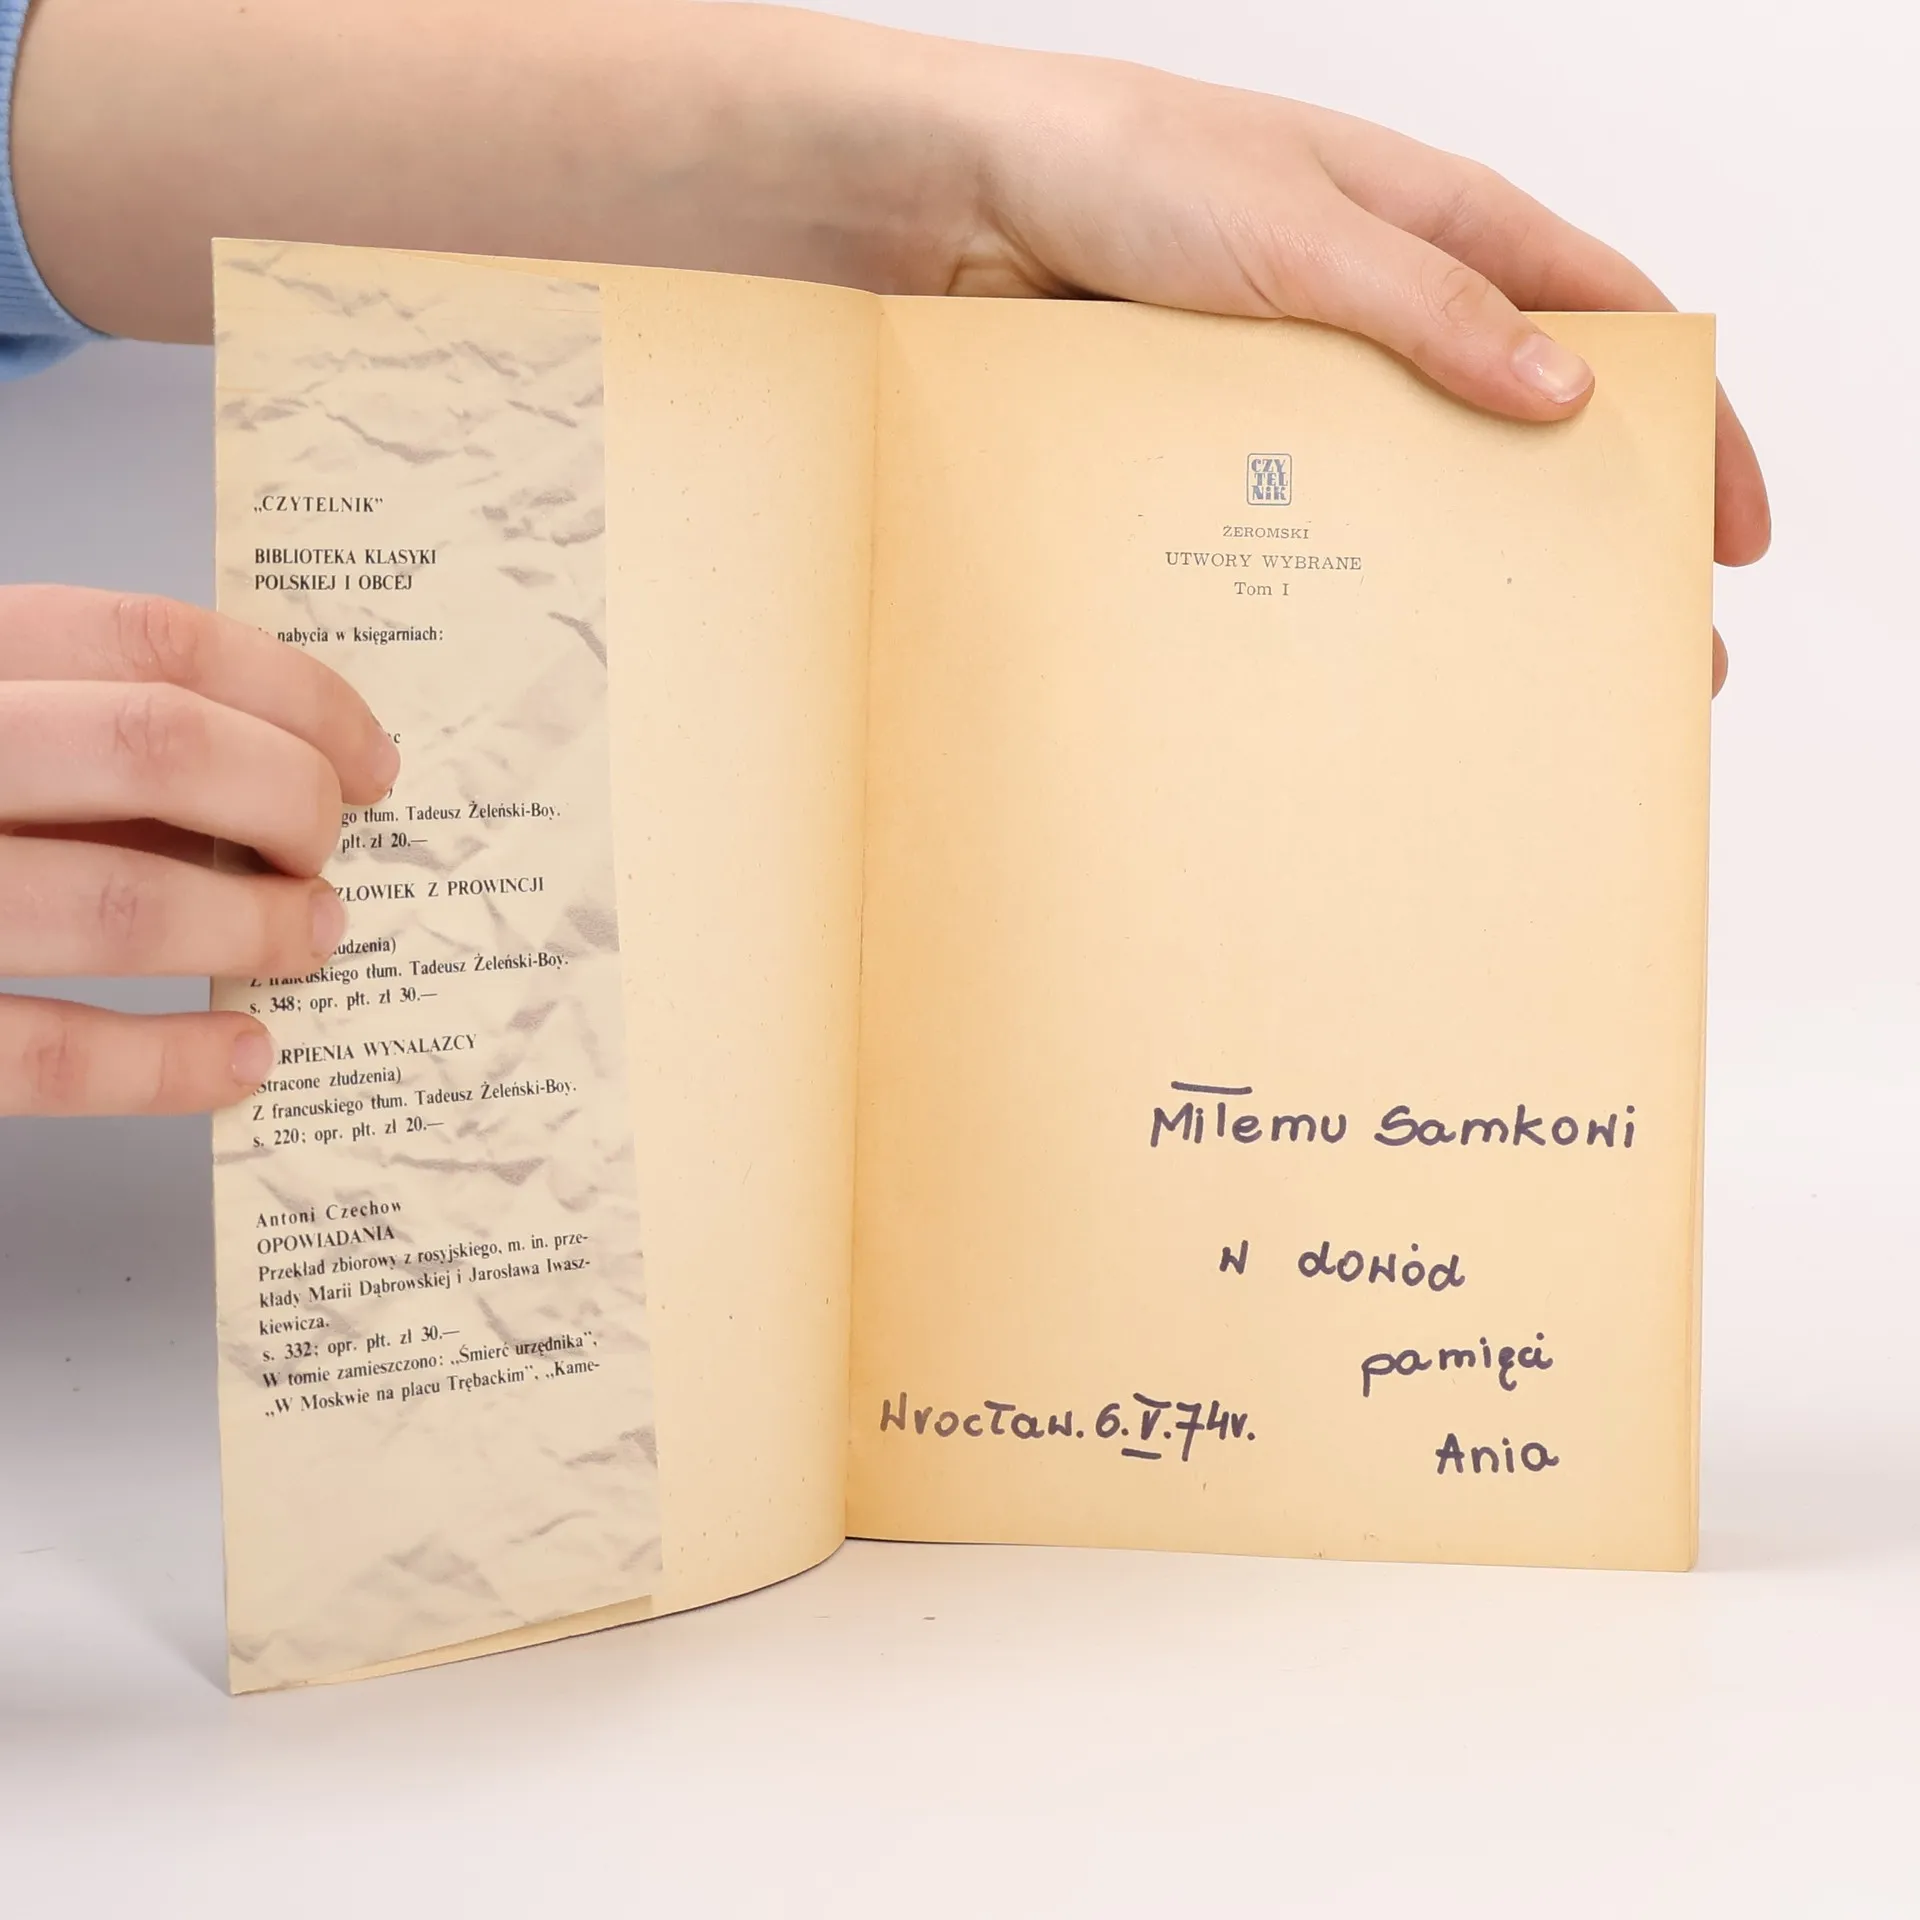 „CZYTELNIK”
BIBLIOTEKA KLASYKI
POLSKIEJ I OBCEJ
nabycia w księgarniach:
go tłum. Tadeusz Żeleński-Boy.
płt. zł 20.—
Z PROWINCJI
Z francuskiego tłum. Tadeusz Żeleński-Boy.
s. 348; opr. płt. zł 30.—
WYNALAZCY
(Stracone złudzenia)
Z francuskiego tłum. Tadeusz Żeleński-Boy.
s. 220; opr. płt. zł 20.—
Antoni Czechow
OPOWIADANIA
Przekład zbiorowy z rosyjskiego, m. in. prze-
kłady Marii Dąbrowskiej i Jarosława Iwasz-
kiewicza.
s. 332; opr. płt. zł 30.—
W tomie zamieszczono: „Śmierć urzędnika”,
„W Moskwie na placu Trębackim”, „Kame-
CZY
TEL
NIK
ŻEROMSKI
UTWORY WYBRANE
Tom I
Miłemu Samkowi
w dowód
pamięci
Wrocław. 6.V.74r.
Ania